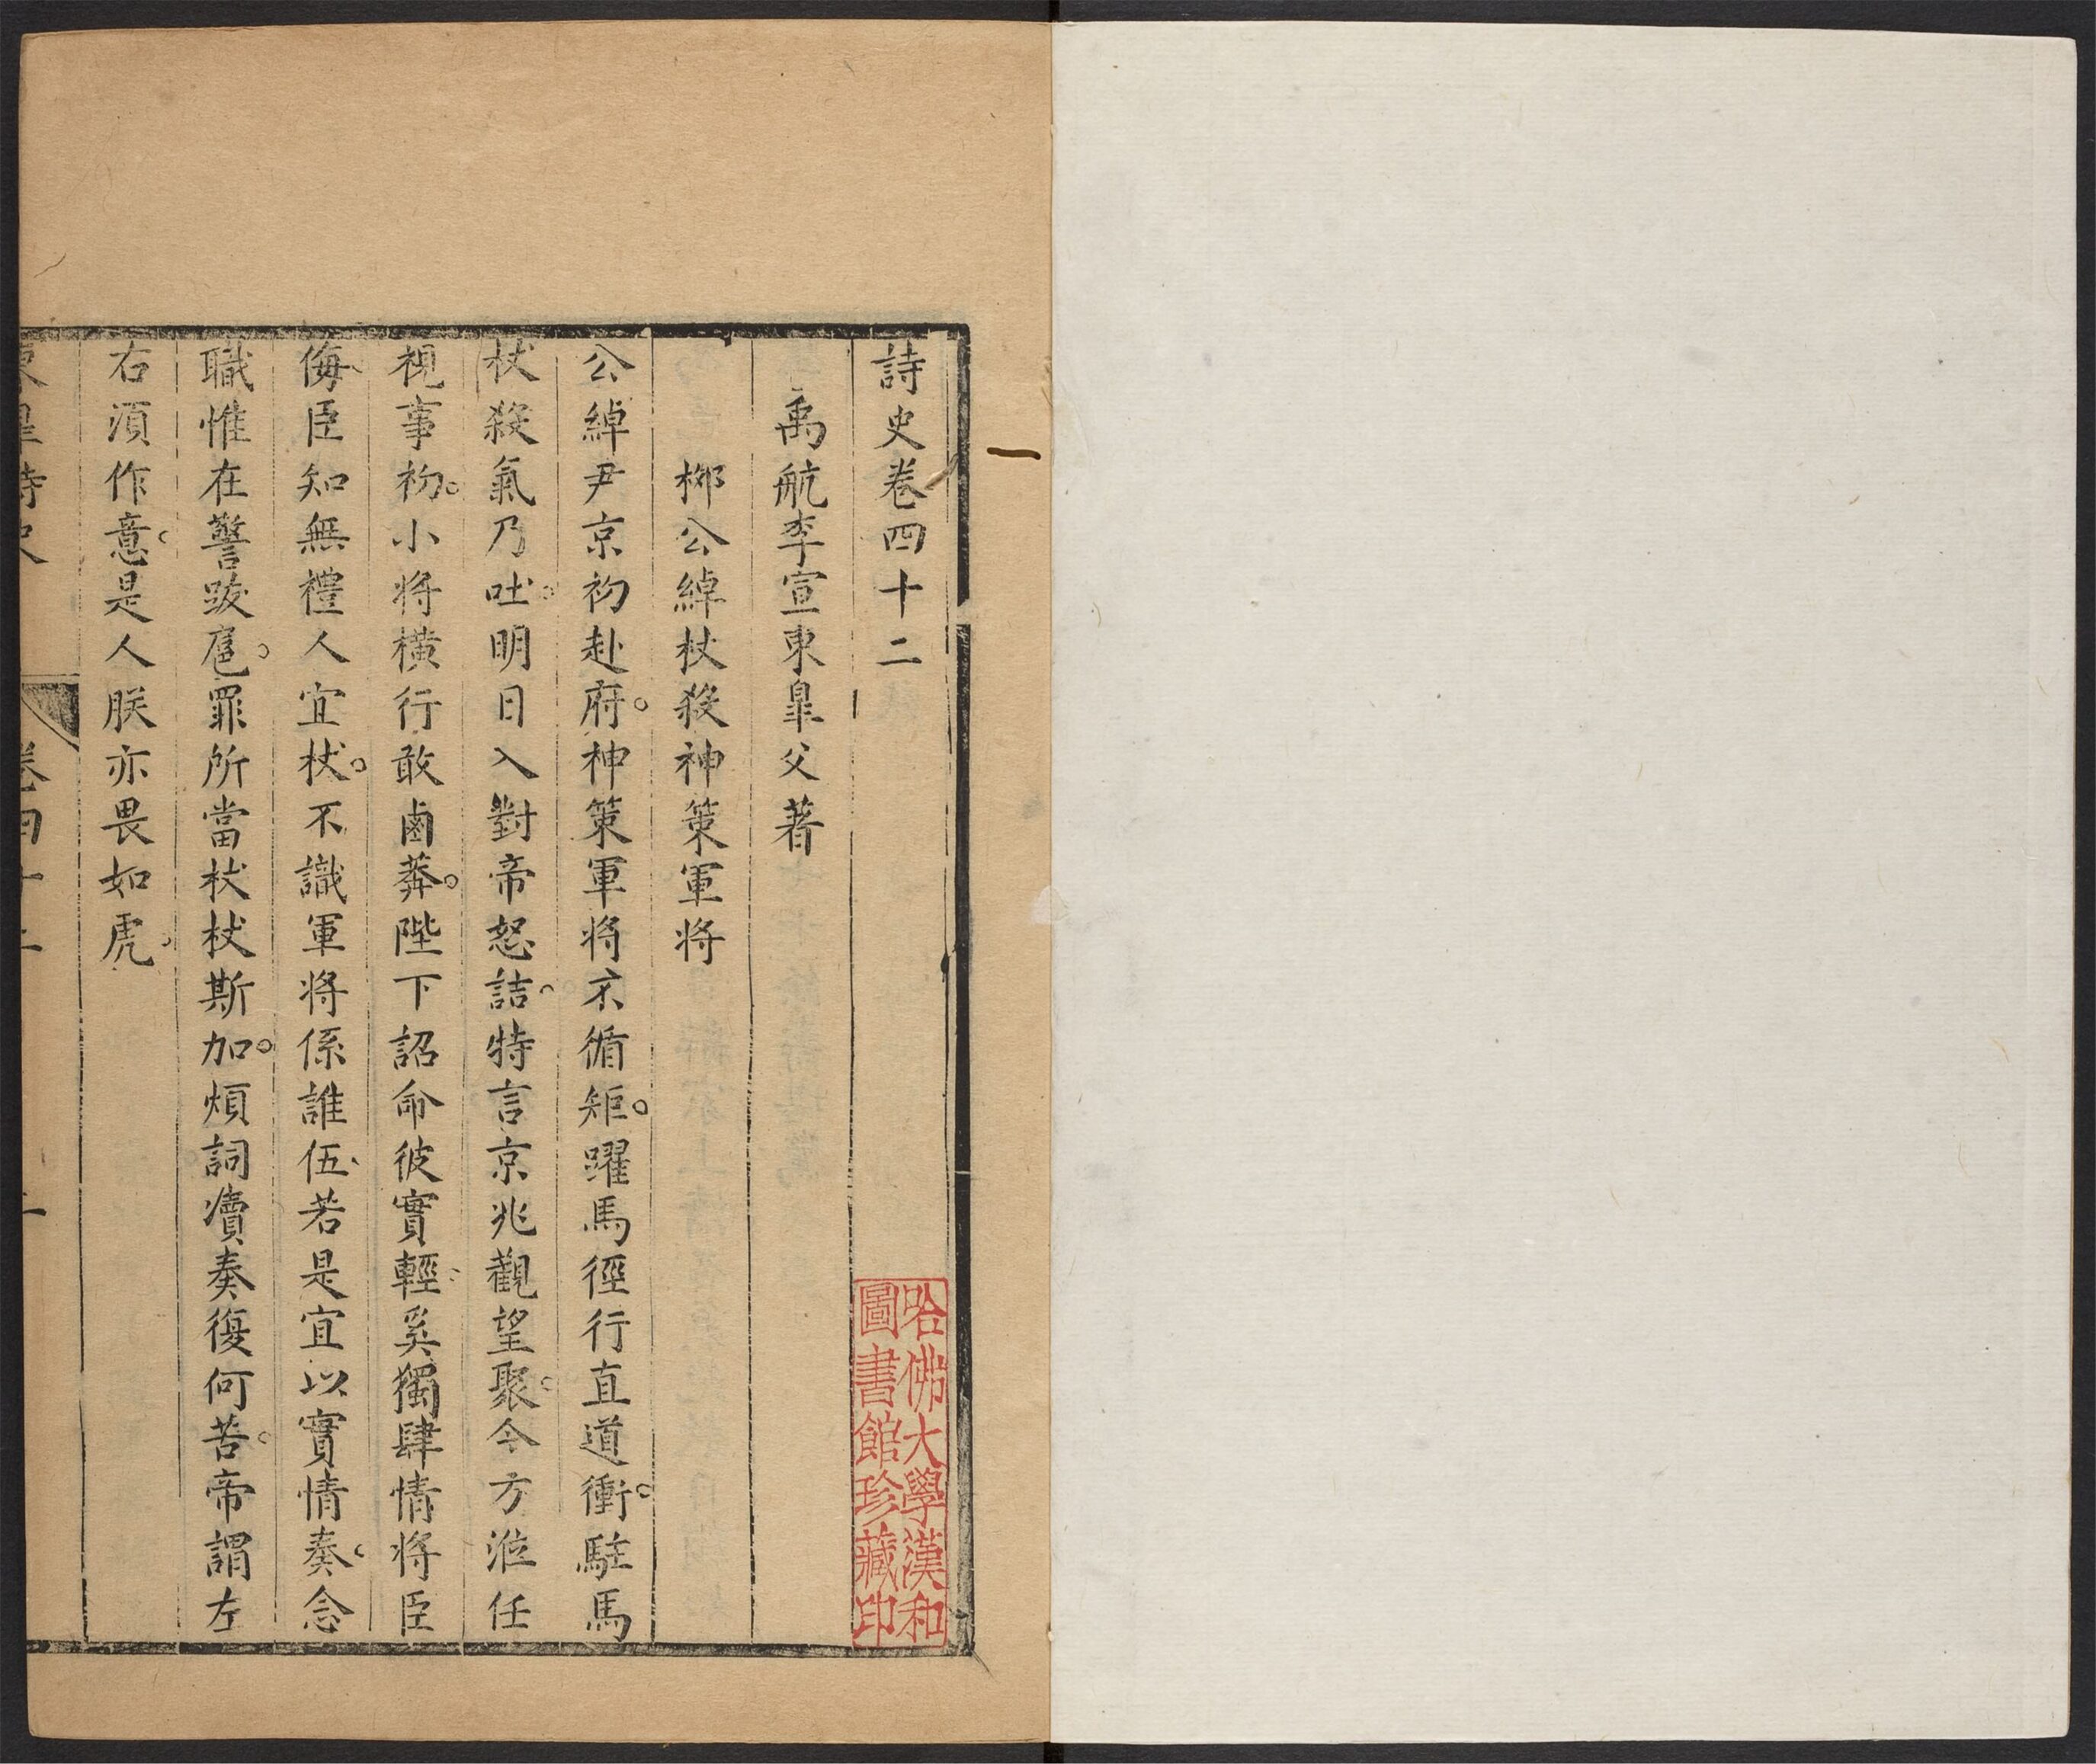 詩史卷四十二
禹航李宣東臯父著
栁公綽杖殺神策軍將
公綽尹京初赴府神策軍將不循矩躍馬徑行直道衝駐馬
杖殺氣乃吐明日入對帝怒詰特言京兆觀望聚今方涖任
視事初小將橫行敢鹵莽陛下詔命彼實輕奚獨肆情將臣
侮臣知無禮人宜杖不識軍將係誰伍若是宜以實情奏念
職惟在警跋扈罪所當杖杖斯加煩詞瀆奏復何苦帝謂左
右須作意是人朕亦畏如虎
哈佛大學漢和
圖書館珍藏印